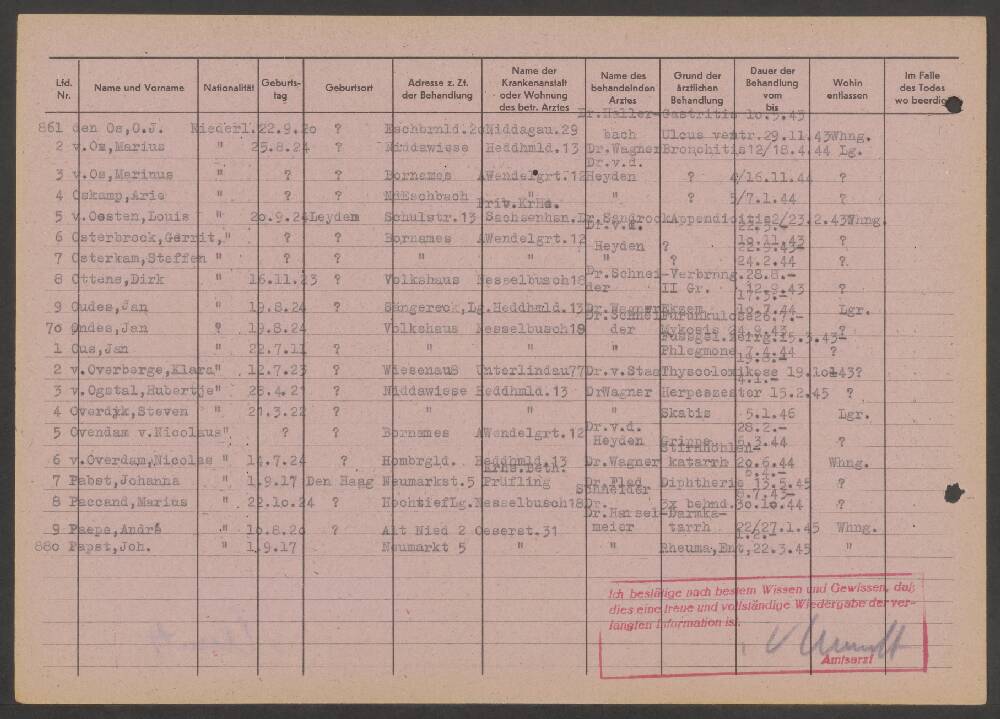 Lfd. Nr. Name und Vorname Nationalität Geburts-tag Geburtsort Adresse z. Zt. der Behandlung Name der Krankenanstalt oder Wohnung des betr. Arztes Name des behandelnden Arztes Grund der ärztlichen Behandlung Dauer der Behandlung vom bis Wohin entlassen Im Falle des Todes wo beerdigt
Dr.Haller-Gastritis 10.5.43
861 den Os,O.J. Niederl.22.9.2o ? Eschbrnld.2o Niddagau.29 bach Ulcus ventr.29.11.43Whng.
2 v.Os,Marius " 25.8.24 ? Niddawiese Heddhmld.13 Dr.Wagner Bronchitis12/18.4.44 Lg.
Dr.v.d.
3 v.Os,Marinus " ? ? Bornames AWendelgrt.12Heyden ? 4/16.11.44 ?
4 Oskamp,Arie " ? ? NdEschbach " " ? 5/7.1.44 ?
Priv.KrHs.
5 v.Oosten,Louis " 2o.9.24Leyden Schulstr.13 Sachsenhsn.Dr.SandrockAppendicitis2/23.2.43Whng.
Dr.v.d. 22.9.-
6 Osterbrock,Gerrit," ? ? Bornames AWendelgrt.12 Heyden ? 1o.11.43 ?
22.9.43-
7 Osterkam,Steffen " ? ? " " " ? 24.2.44 ?
Dr.Schnei-Verbrnng.28.8.-
8 Ottens,Dirk " 16.11.23 ? Volkshaus Nesselbusch18 der II Gr. 12.9.43 ?
17.5.-
9 Oudes,Jan " 19.8.24 Sängereck,Lg.Heddhmld.13Dr.WagnerEkzem 1o.7.44 Lgr.
Dr.SchneiFurunkulose26.7.-
7o Ondes,Jan ? 19.8.24 Volkshaus Nesselbusch18 der Mykosis 24.9.43 ?
15.3.43-
1 Ous,Jan " 22.7.11 ? " " " Phlegmone 7.4.44 ?
2 v.Overberge,Klara" 12.7.23 ? Wiesenau8 Unterlindau77Dr.v.Staa 19.1o.43?
4.1.-
3 v.Ogstal,Hubertje" 28.4.27 ? Niddawiese Heddhmld.13 DrWagner Herpeszestor 15.2.45 ?
4 Overdyk,Steven " 21.3.22 ? " " " Skabis 5.1.46 Lgr.
Dr.v.d. 28.2.-
5 Ovendam v.Nicolaus" ? ? Bornames AWendelgrt.12 Heyden Grippe 6.3.44 ?
Stirnhöhlen-
6 v.Overdam,Nicolas " 14.7.24 ? Hombrgld. Heddhmld.13 Dr.Wagner katarrh 2o.6.44 Whng.
Krhs.Beth. 2.4.-
7 Pabst,Johanna " 1.9.17 Den Haag Neumarkt.5 Prüfling Dr.Pied Diphtherie 13.5.45 ?
Schneider 8.7.43-
8 Paccand,Marius " 22.1o.24 ? HochtiefLg.Nesselbusch18Dr. 3x behnd.3o.1o.44 ?
Dr.Hansel-Darmka-
9 Paepe,André " 1o.8.2o ? Alt Nied 2 Oeserst.31 meier tarrh 22/27.1.45 Whng.
1.2.-
88o Papst,Joh. " 1.9.17 Neumarkt 5 " " Rheuma,Ent,22.3.45 "
Ich bestätige nach bestem Wissen und Gewissen, daß
dies eine treue und vollständige Wiedergabe der ver-
langten Information ist.
Amtsarzt